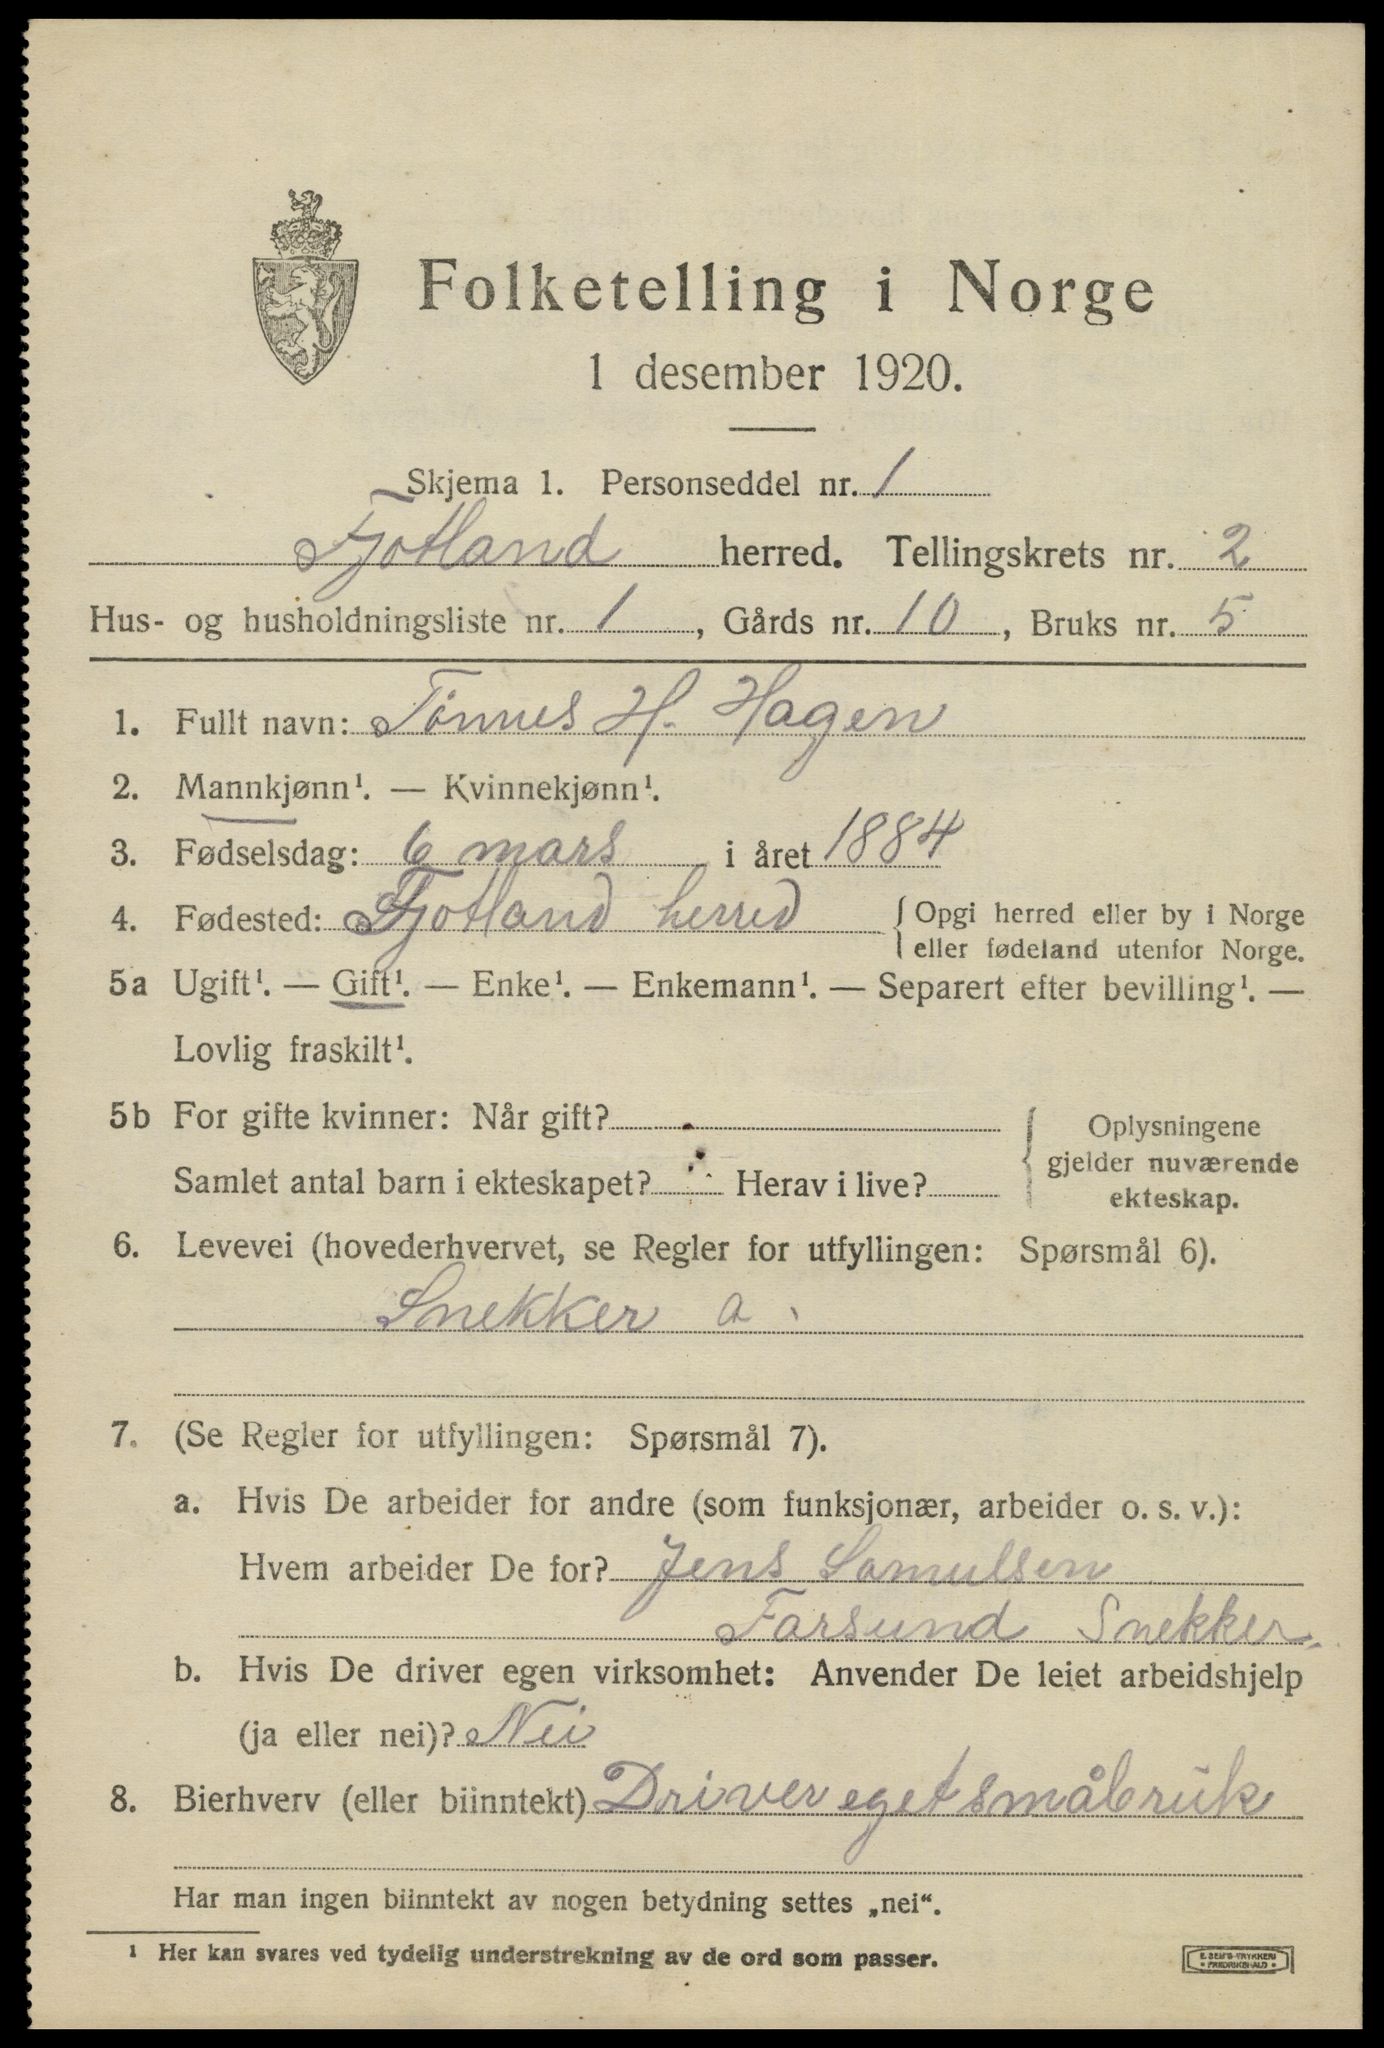 Folketelling i Norge
1 desember 1920.
Skjema 1. Personseddel nr. 1
Fjotland herred. Tellingskrets nr. 2
Hus- og husholdningsliste nr. 1, Gårds nr. 10, Bruks nr. 5
1. Fullt navn: Tönnes H. Hagen
2. Mannkjønn¹. — Kvinnekjønn¹.
3. Fødselsdag: 6 mars i året 1884
4. Fødested: Fjotland herred { Opgi herred eller by i Norge
eller fødeland utenfor Norge.
5a Ugift¹. — Gift¹. — Enke¹. — Enkemann¹. — Separert efter bevilling¹. —
Lovlig fraskilt¹.
5b For gifte kvinner: Når gift?
Samlet antal barn i ekteskapet? Herav i live?
{ Oplysningene
gjelder nuværende
ekteskap.
6. Levevei (hovederhvervet, se Regler for utfyllingen: Spørsmål 6).
Snekker a.
7. (Se Regler for utfyllingen: Spørsmål 7).
a. Hvis De arbeider for andre (som funksjonær, arbeider o. s. v.):
Hvem arbeider De for? Jens Samulsen
Farsund Snekker.
b. Hvis De driver egen virksomhet: Anvender De leiet arbeidshjelp
(ja eller nei)? Nei
8. Bierhverv (eller biinntekt) Driver eget småbrük
Har man ingen biinntekt av nogen betydning settes „nei“.
¹ Her kan svares ved tydelig understrekning av de ord som passer.
E. SEM'S TRYKKERI
• FREDRIKSHALD •